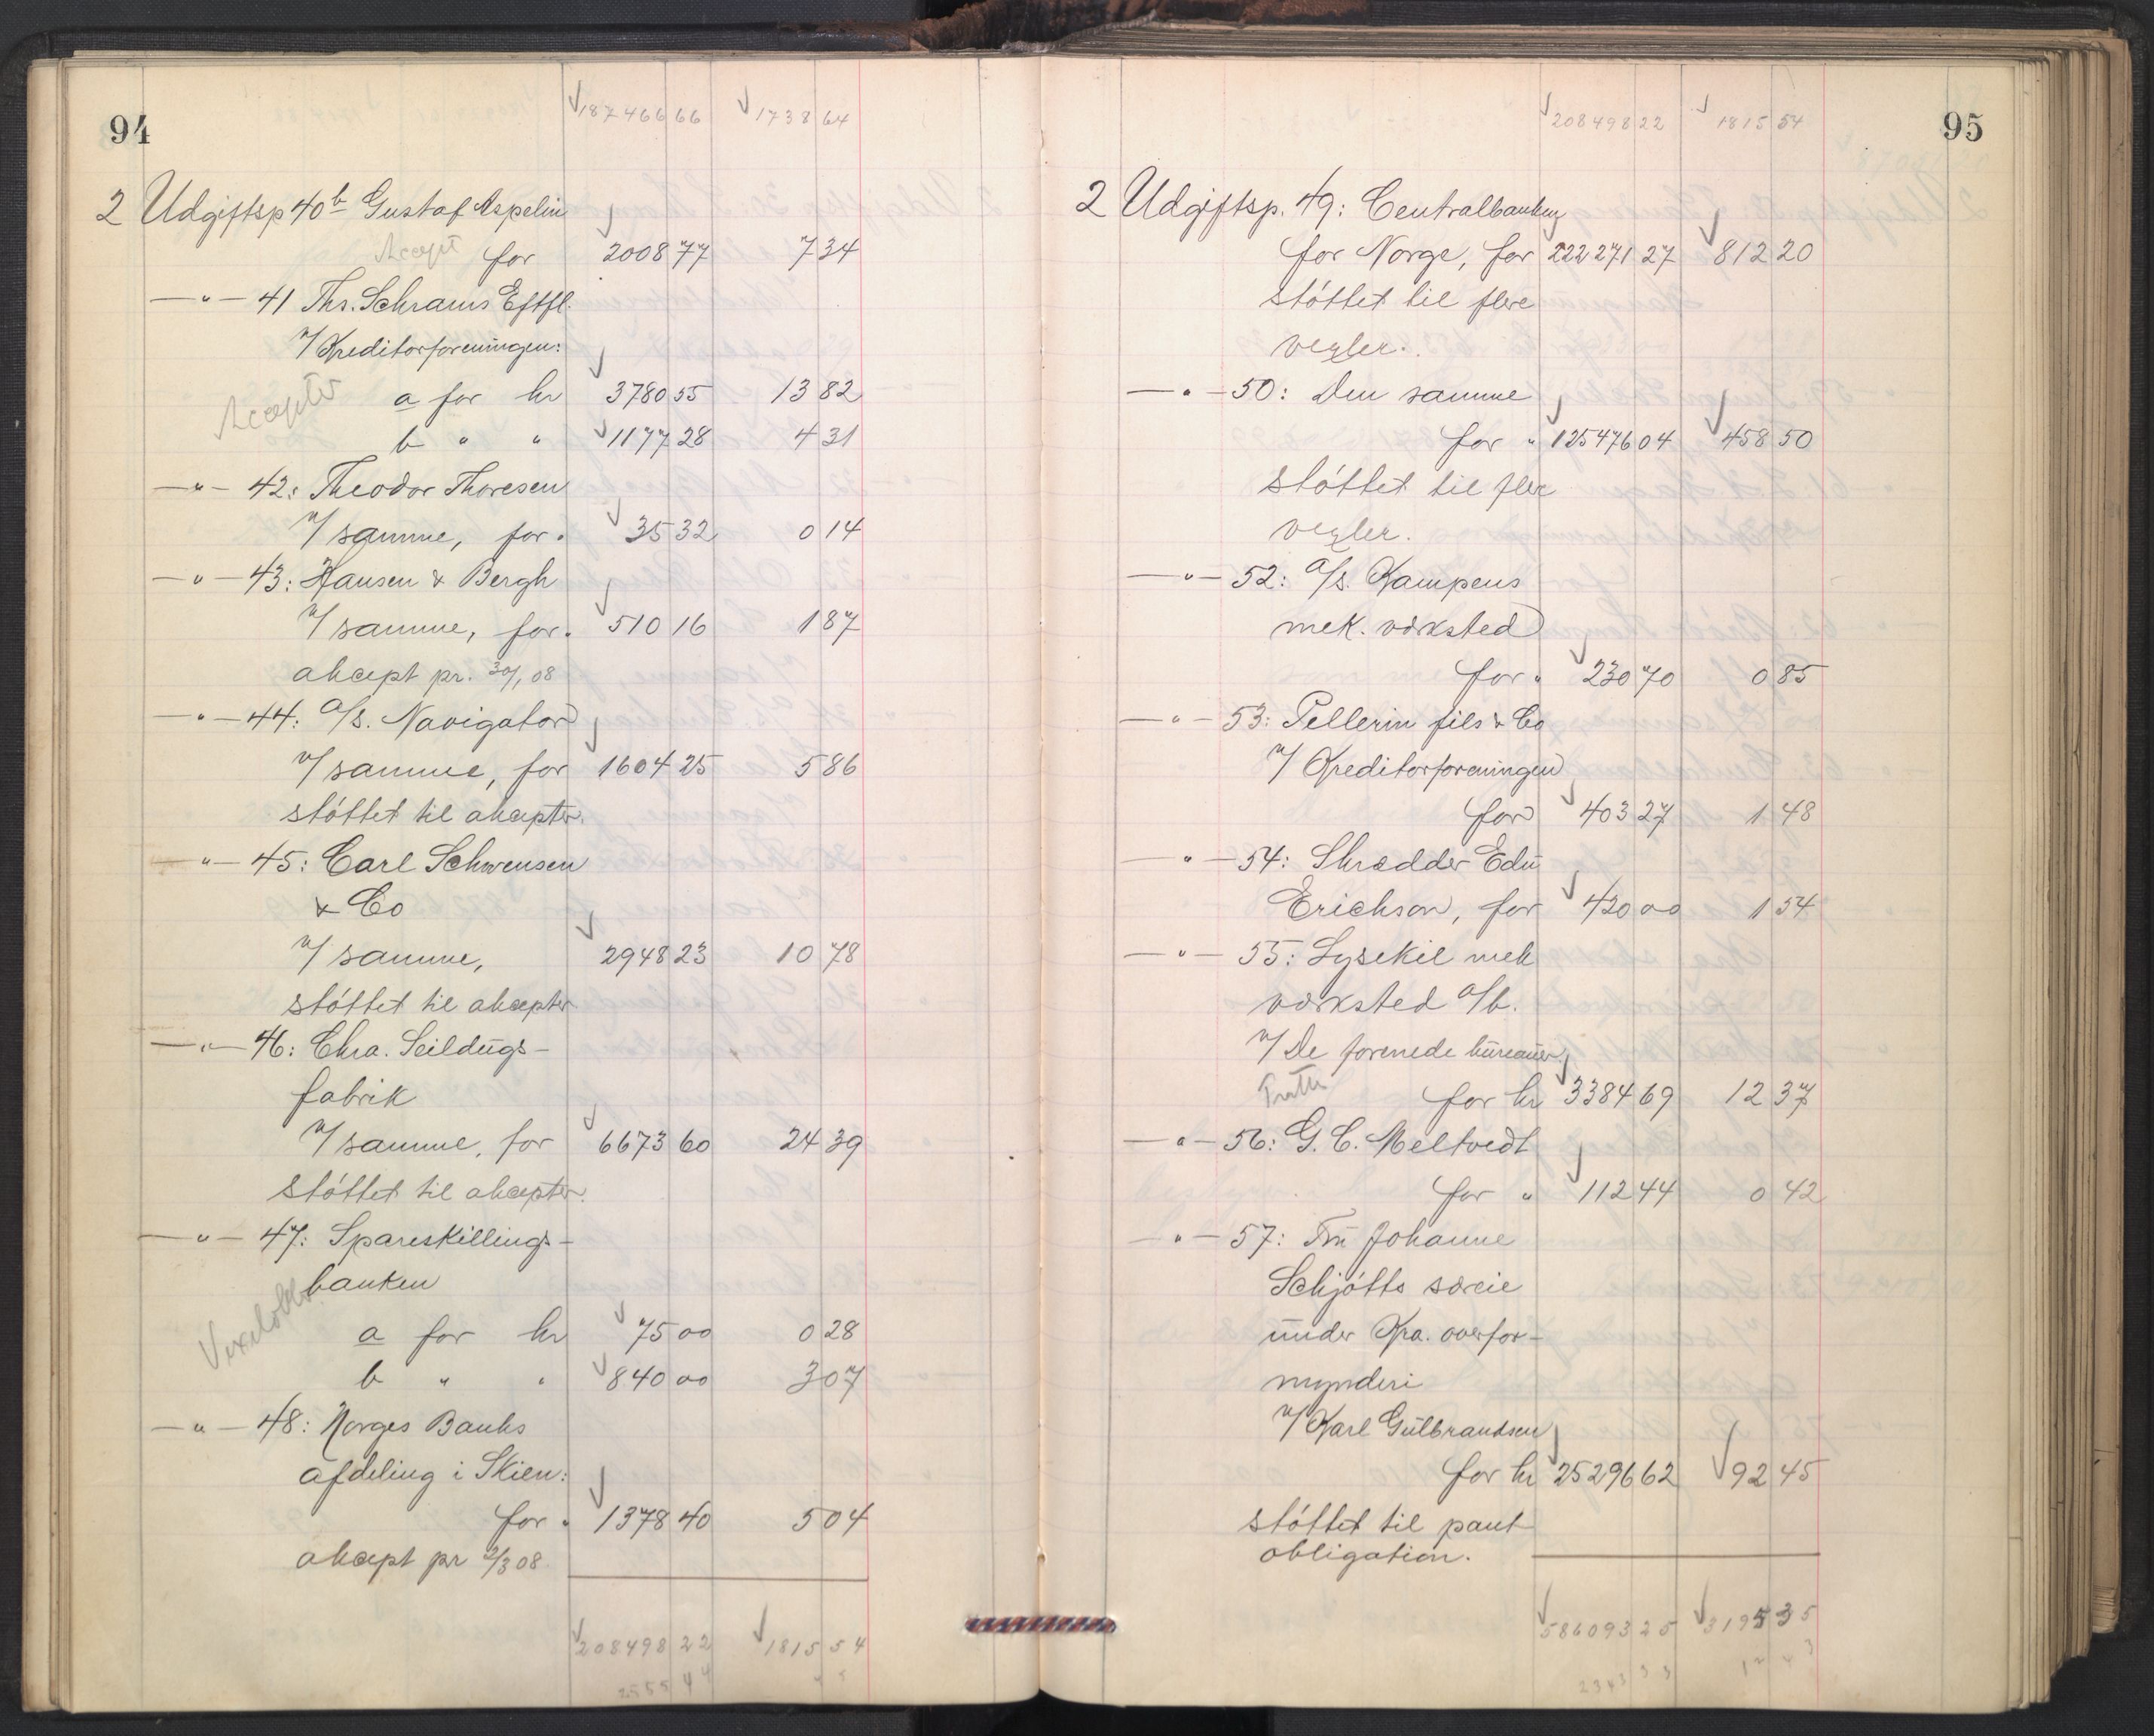 94
187466 66 1738 64
2 Udgiftsp 40b Gustaf Aspelin
Accept for 2008 77 7 34
—"— 41 Ths. Schrams Eftfl.
v/ Kreditorforeningen:
Accepter a for kr 3780 55 13 82
b " " 1177 28 4 31
—"— 42: Theodor Thoresen
v/ samme, for " 35 32 0 14
—"— 43: Hansen & Bergh
v/ samme, for " 510 16 1 87
akcept pr. 30/1 08
—"— 44: A/S. Navigator
v/ samme, for 1604 25 5 86
støttet til akcepter.
—"— 45: Carl Schwensen
& Co
v/ samme, 2948 23 10 78
støttet til akcepter
—"— 46: Chra. Seildugs-
fabrik
v/ samme, for 6673 60 24 39
støttet til akcepter.
—"— 47: Spareskillings-
banken
Vexelobl.
a for kr 75 00 0 28
b " " 840 00 3 07
—"— 48: Norges Banks
afdeling i Skien:
for " 1378 40 5 04
akcept pr 2/3 08
208498 22 1815 54
95
208498 22 1815 54
2 Udgiftsp. 49: Centralbanken
for Norge, for 222271 27 812 20
støttet til flere
vexler.
—"— 50: Den samme
for " 125476 04 458 50
støttet til flere
vexler.
—"— 52: A/S. Kampens
mek. værksted
for " 230 70 0 85
—"— 53: Pellerin fils & Co
v/ Kreditorforeningen
for 403 27 1 48
—"— 54: Skrædder Edu
Erichson, for 420 00 1 54
—"— 55: Lysekil mek
værksted a/b.
v/ De forenede bureauer,
Tratte for kr 3384 69 12 37
—"— 56: G. C. Meltvedt
for " 112 44 0 42
—"— 57: Fru Johanne
Schjøtts særeie
under Kra. overfor-
mynderi
v/ Karl Gulbrandsen
for kr 25296 62 92 45
støttet til pant
obligation.
586093 25 3195 35